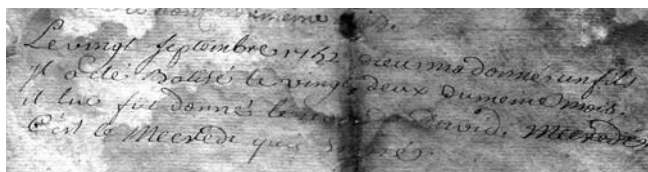 du meme
Le vingt Septembre 1752 Dieu m'a donné un fils
Il a été Batisé le vingt deux du meme mois.
il lui fut donné le David. Mecredi
C'ést le Mecredi